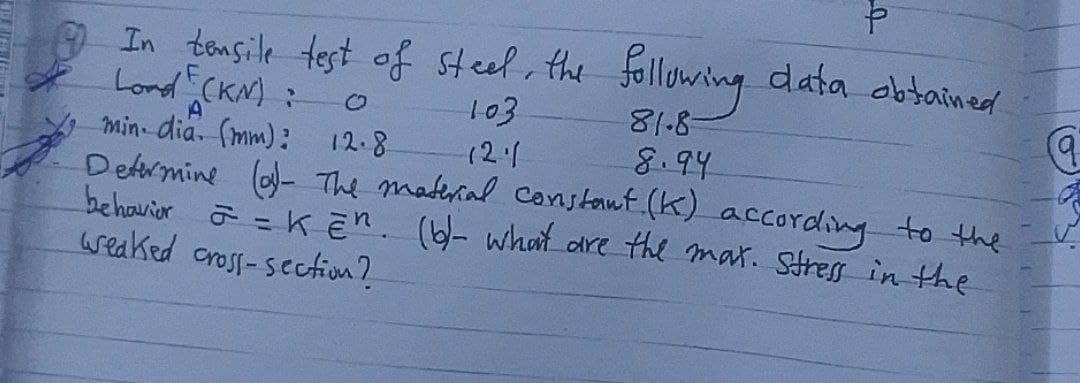 p
4) In tensile test of steel, the following data obtained
Load F (KN) : 0 103 81.8
A
min. dia. (mm): 12.8 12.1 8.94
Determine (a)- The material constant (K) according to the
behavior σ̄ = K ε̄ⁿ. (b)- what are the max. stress in the
weaked cross-section?
9